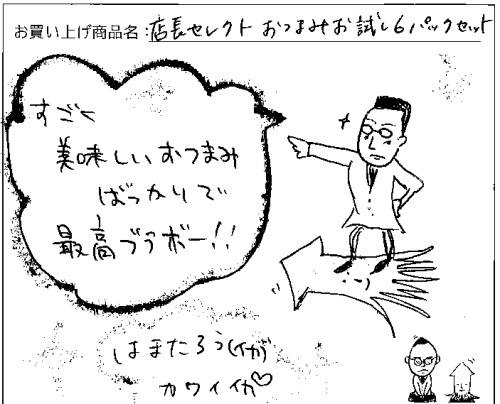 お買い上げ商品名:店長セレクト おつまみお試し6パックセット
すごく
美味しいおつまみ
ばっかりで
最高ブラボー!!
はまたろう(イカ)
カワイイか♡